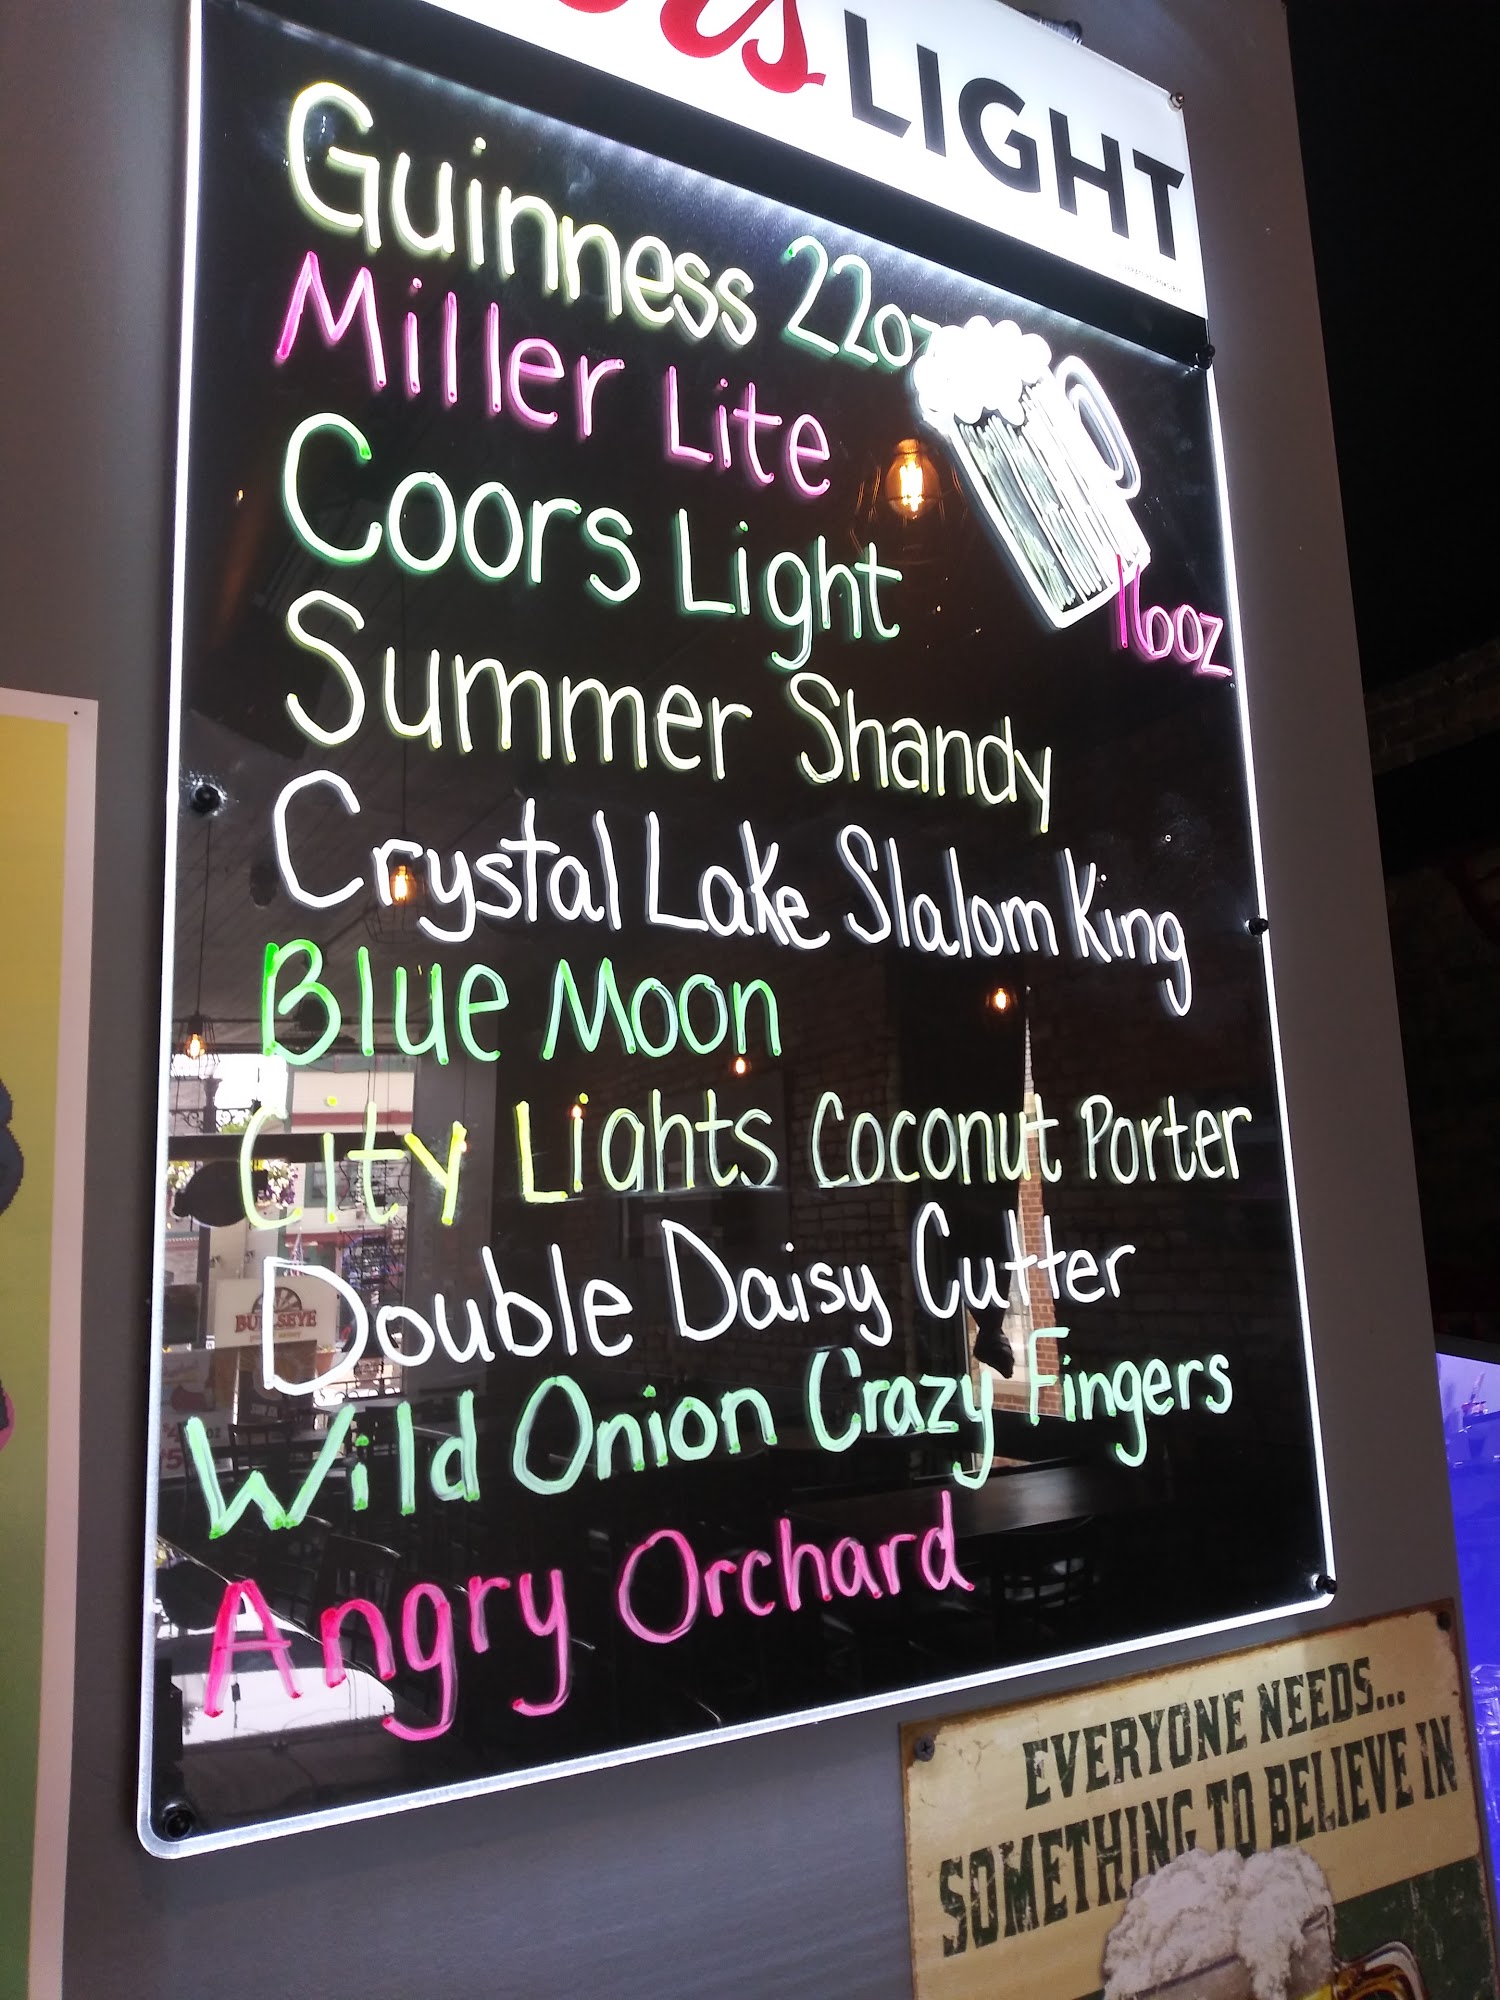 LIGHT
Guinness 22oz
Miller Lite
Coors Light
16oz
Summer Shandy
Crystal Lake Slalom King
Blue Moon
City Lights Coconut Porter
Double Daisy Cutter
Wild Onion Crazy Fingers
Angry Orchard
BULLSEYE
EVERYONE NEEDS...
SOMETHING TO BELIEVE IN